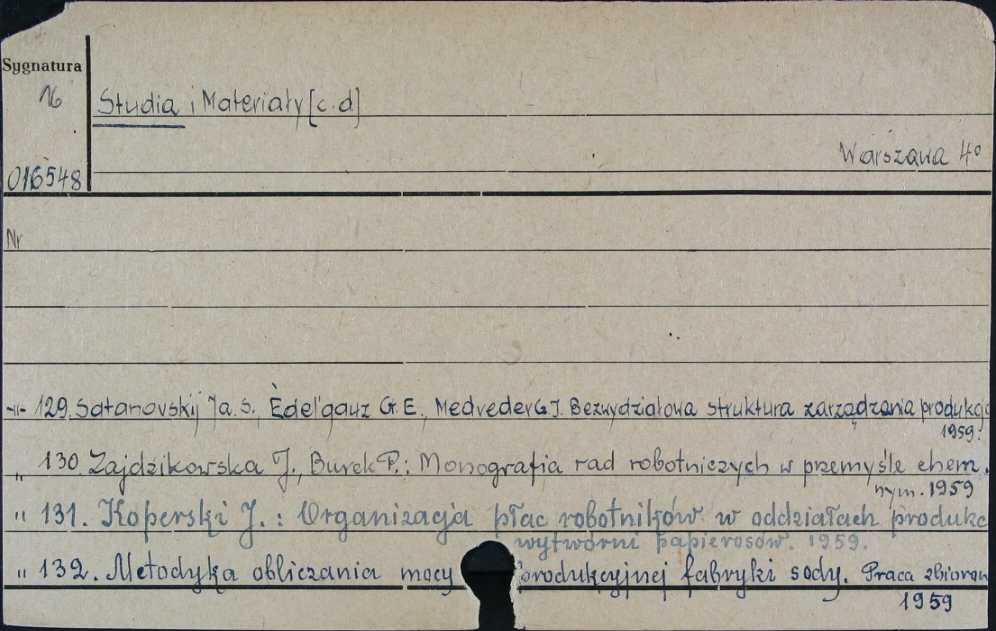 Sygnatura
16
Studia i Materiały [c.d]
Warszawa 4°
016548
Nr
-"- 129. Satanovskij Ja. S., Èdel'gauz G. E., Medvedev G. J. Bezwydziałowa struktura zarządzania produkcją
1959.
" 130. Zajdzikowska J., Burek P.: Monografia rad robotniczych w przemyśle chem.
nym. 1959
" 131. Koperski J.: Organizacja płac robotników w oddziałach produkc
wytwórni papierosów. 1959.
" 132. Metodyka obliczania mocy produkcyjnej fabryki sody. Praca zbiorow
1959